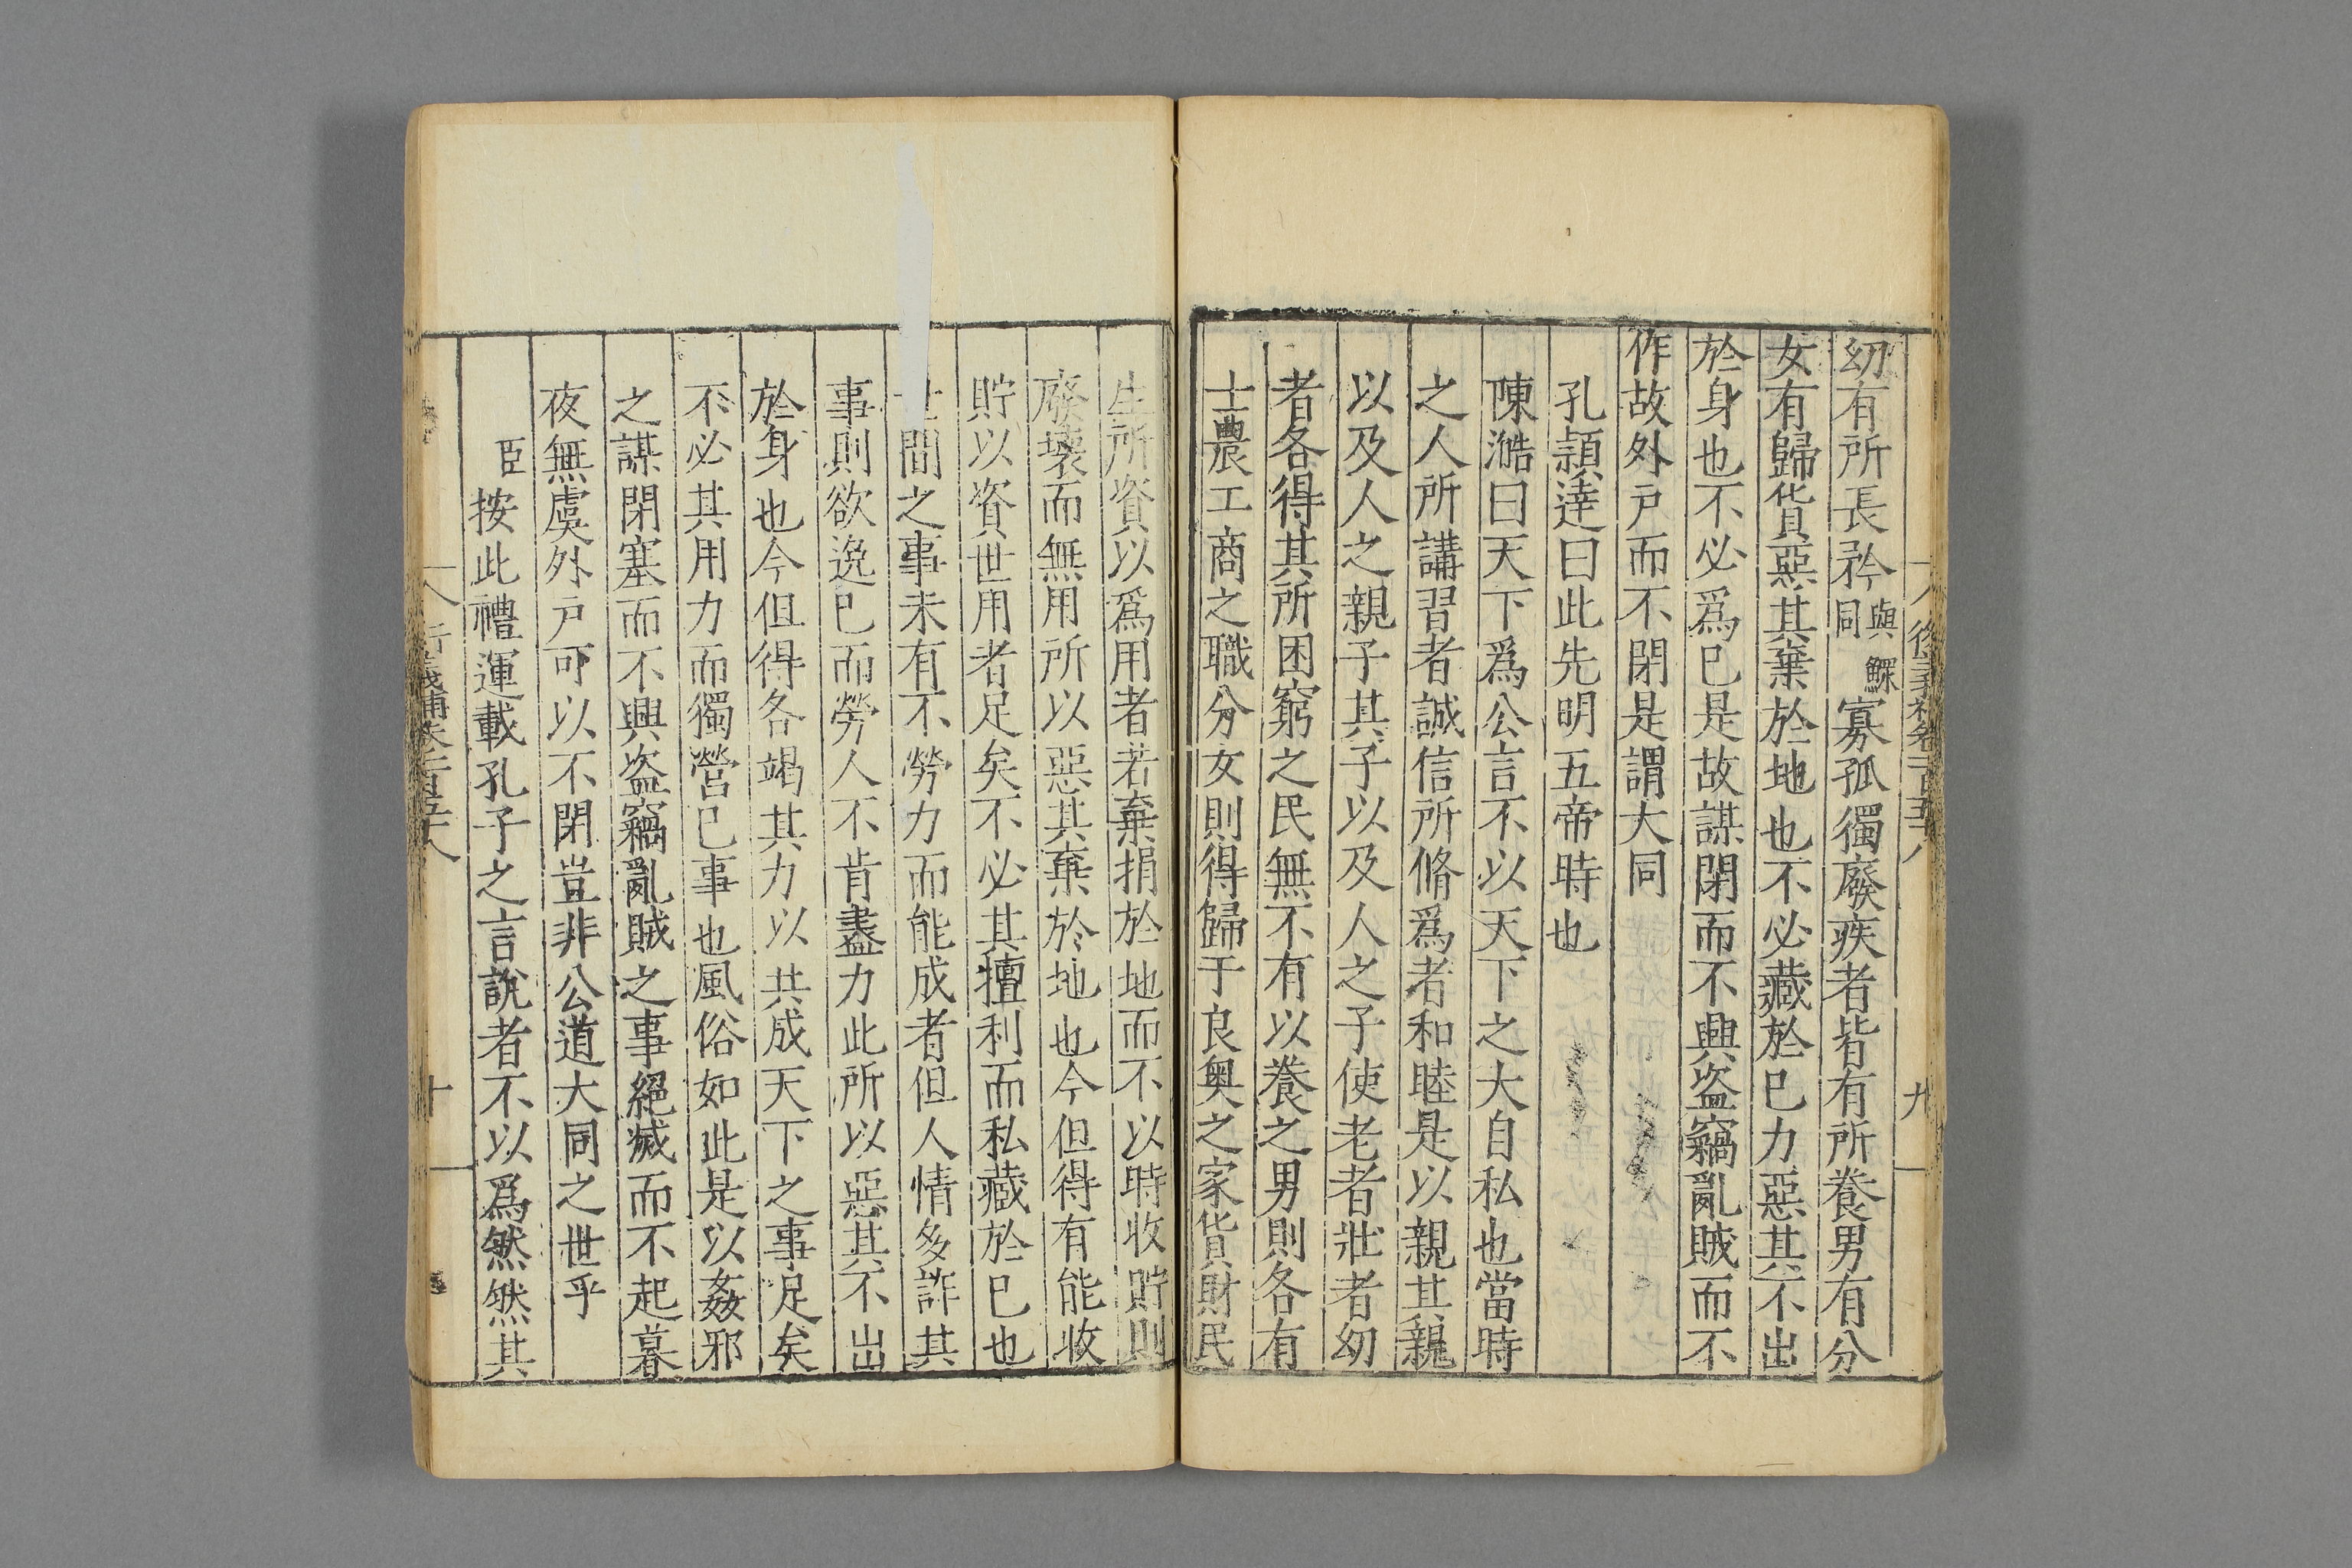 幼有所長矜與鰥同寡孤獨廢疾者皆有所養男有分
女有歸貨惡其棄於地也不必藏於己力惡其不出
於身也不必爲己是故謀閉而不興盜竊亂賊而不
作故外戶而不閉是謂大同
孔頴達曰此先明五帝時也
陳澔曰天下爲公言不以天下之大自私也當時
之人所講習者誠信所脩爲者和睦是以親其親
以及人之親子其子以及人之子使老者壯者幼
者各得其所困窮之民無不有以養之男則各有
士農工商之職分女則得歸于良奧之家貨財民
生所資以爲用者若棄捐於地而不以時收貯則
廢壞而無用所以惡其棄於地也今但得有能收
貯以資世用者足矣不必其擅利而私藏於己也
世間之事未有不勞力而能成者但人情多詐其
事則欲逸己而勞人不肯盡力此所以惡其不出
於身也今但得各竭其力以共成天下之事足矣
不必其用力而獨營己事也風俗如此是以姦邪
之謀閉塞而不興盜竊亂賊之事絕滅而不起暮
夜無虞外戶可以不閉豈非公道大同之世乎
臣按此禮運載孔子之言說者不以爲然然其
九
十